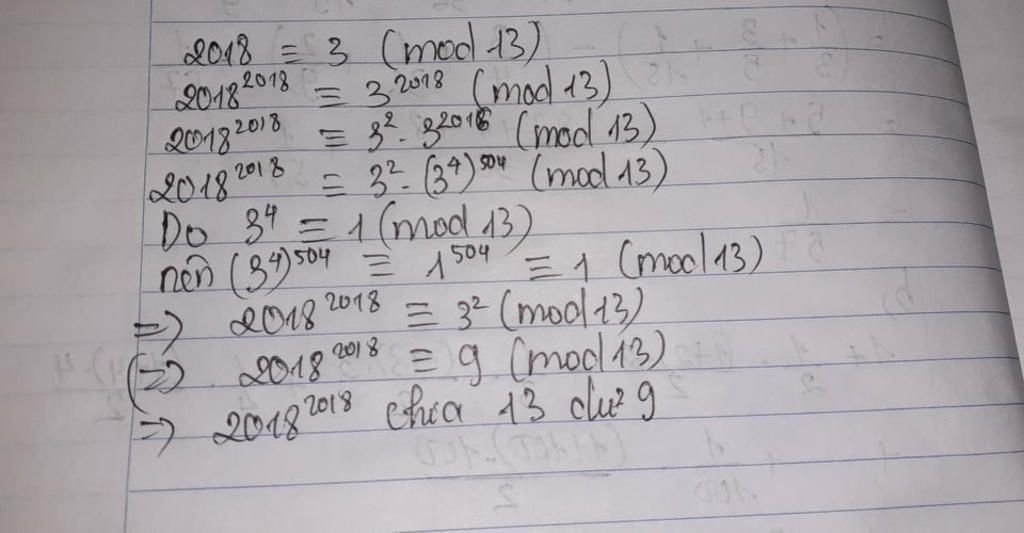 2018 ≡ 3 (mod 13)
2018^2018 ≡ 3^2018 (mod 13)
2018^2018 ≡ 3^2 . 3^2016 (mod 13)
2018^2018 ≡ 3^2 . (3^4)^504 (mod 13)
Do 3^4 ≡ 1 (mod 13)
nên (3^4)^504 ≡ 1^504 ≡ 1 (mod 13)
=> 2018^2018 ≡ 3^2 (mod 13)
(=> 2018^2018 ≡ 9 (mod 13)
=> 2018^2018 chia 13 dư 9